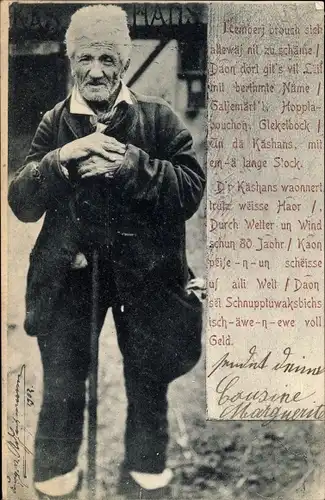 KAS HANS
Nemperj brouch sich
allewäj nit zu schäme /
Daon dort git's vil Leit
mit berihmte Näme /
Galjemärt'l, Hoppla-
souchon, Glekelbock /
Un dä Käshans, mit
ein-ä lange Stock.
D'r Käshans waonnert
trutz weisse Haor /
Durch Wetter un Wind
schun 80 Jaohr / Kaon
peife-n-un scheisse
uf alli Welt / Daon
sei Schnupptuwaksbichs
isch-äwe-n-ewe voll
Geld.
sendet deine
Cousine
Marguerite